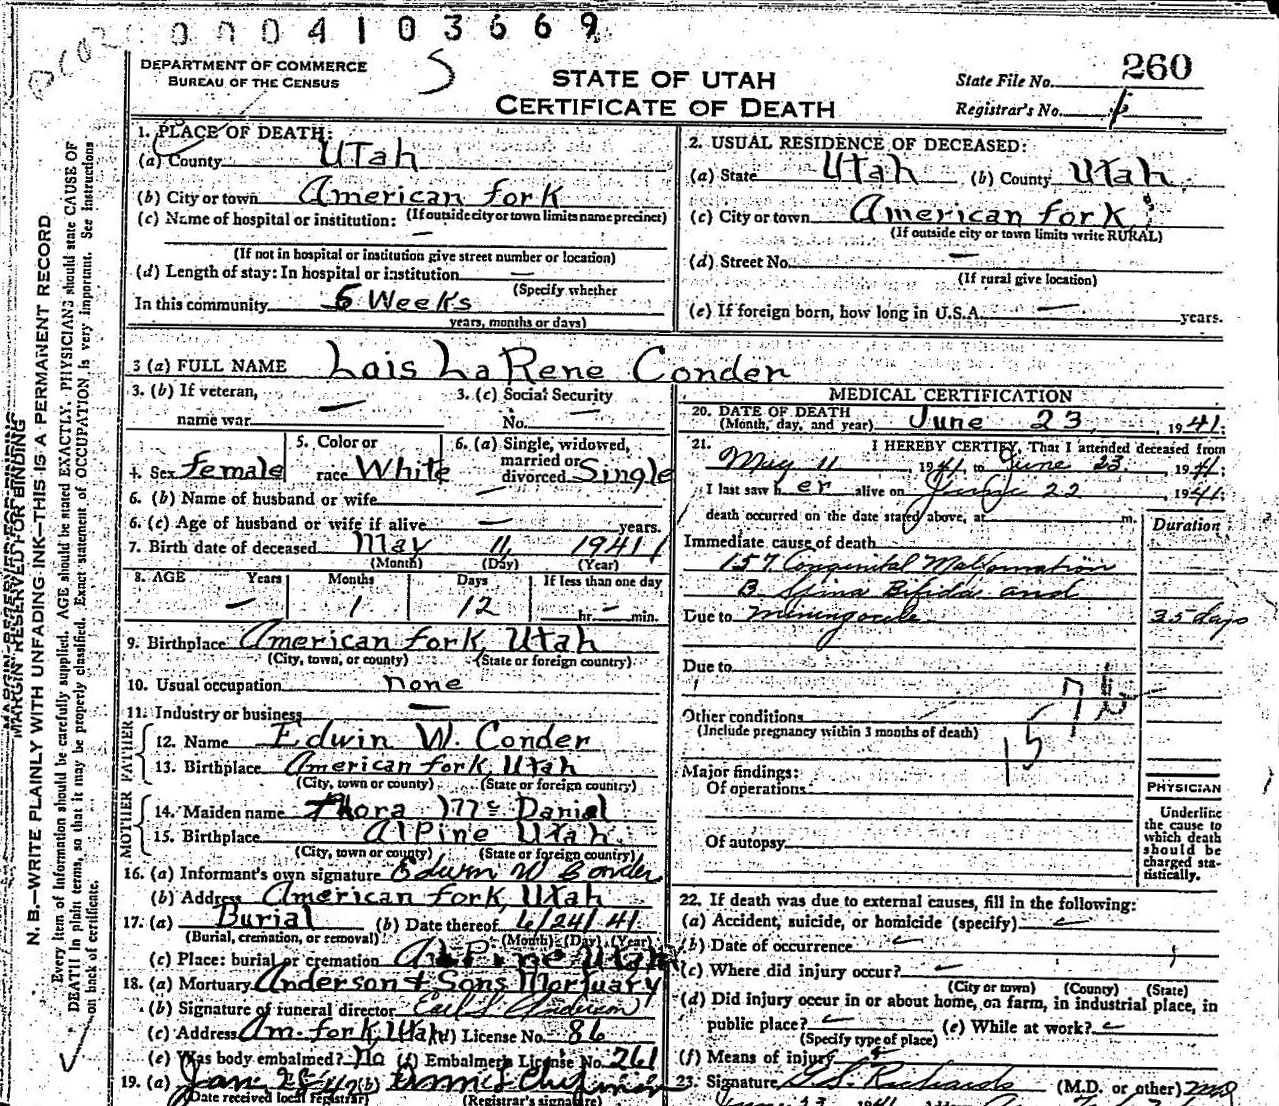 0004103669
DEPARTMENT OF COMMERCE
BUREAU OF THE CENSUS
S
STATE OF UTAH
CERTIFICATE OF DEATH
State File No. 260
Registrar's No.
MARGIN RESERVED FOR BINDING
N. B.—WRITE PLAINLY WITH UNFADING INK—THIS IS A PERMANENT RECORD
Every item of information should be carefully supplied. AGE should be stated EXACTLY. PHYSICIANS should state CAUSE OF
DEATH in plain terms, so that it may be properly classified. Exact statement of OCCUPATION is very important. See instructions
on back of certificate.
1. PLACE OF DEATH:
(a) County Utah
(b) City or town American fork
(c) Name of hospital or institution: (If outside city or town limits name precinct)
—
(If not in hospital or institution give street number or location)
(d) Length of stay: In hospital or institution —
(Specify whether
In this community 6 Weeks
years, months or days)
2. USUAL RESIDENCE OF DECEASED:
(a) State Utah (b) County Utah
(c) City or town American fork
(If outside city or town limits write RURAL)
(d) Street No. —
(If rural give location)
(e) If foreign born, how long in U.S.A. — years.
3 (a) FULL NAME Lois La Rene Conder
3. (b) If veteran, name war —
3. (c) Social Security No. —
4. Sex female
5. Color or race White
6. (a) Single, widowed, married or divorced Single
6. (b) Name of husband or wife —
6. (c) Age of husband or wife if alive — years.
7. Birth date of deceased May 11, 1941
(Month) (Day) (Year)
8. AGE Years Months Days If less than one day
— 1 12 hr. — min.
9. Birthplace American fork, Utah
(City, town, or county) (State or foreign country)
10. Usual occupation none
11. Industry or business —
FATHER
12. Name Edwin W. Conder
13. Birthplace American fork Utah
(City, town or county) (State or foreign country)
MOTHER
14. Maiden name Thora Mc Daniel
15. Birthplace Alpine Utah
(City, town or county) (State or foreign country)
16. (a) Informant's own signature Edwin W Conder
(b) Address American fork, Utah
17. (a) Burial (b) Date thereof 6/24/41
(Burial, cremation, or removal) (Month) (Day) (Year)
(c) Place: burial or cremation Alpine Utah
18. (a) Mortuary Anderson & Sons Mortuary
(b) Signature of funeral director Earl S. Anderson
(c) Address Am. fork, Utah (d) License No. 86
(e) Was body embalmed? No (f) Embalmers License No. 261
19. (a) Jan (b)
(Date received local registrar) (Registrar's signature)
MEDICAL CERTIFICATION
20. DATE OF DEATH
(Month, day, and year) June 23, 1941.
21. I HEREBY CERTIFY, That I attended deceased from
May 11, 1941 to June 23 1941.
I last saw her alive on June 22, 1941.
death occurred on the date stated above, at m.
Duration
Immediate cause of death
157 Congenital Malformation
B Spina Bifida and
Due to Meningocele 35 days
Due to
Other conditions
(Include pregnancy within 3 months of death)
157b
Major findings:
Of operations
Of autopsy
PHYSICIAN
Underline
the cause to
which death
should be
charged sta-
tistically.
22. If death was due to external causes, fill in the following:
(a) Accident, suicide, or homicide (specify)
(b) Date of occurrence
(c) Where did injury occur?
(City or town) (County) (State)
(d) Did injury occur in or about home, on farm, in industrial place, in
public place? (e) While at work?
(Specify type of place)
(f) Means of injury
23. Signature G. S. Richards (M.D. or other) MD